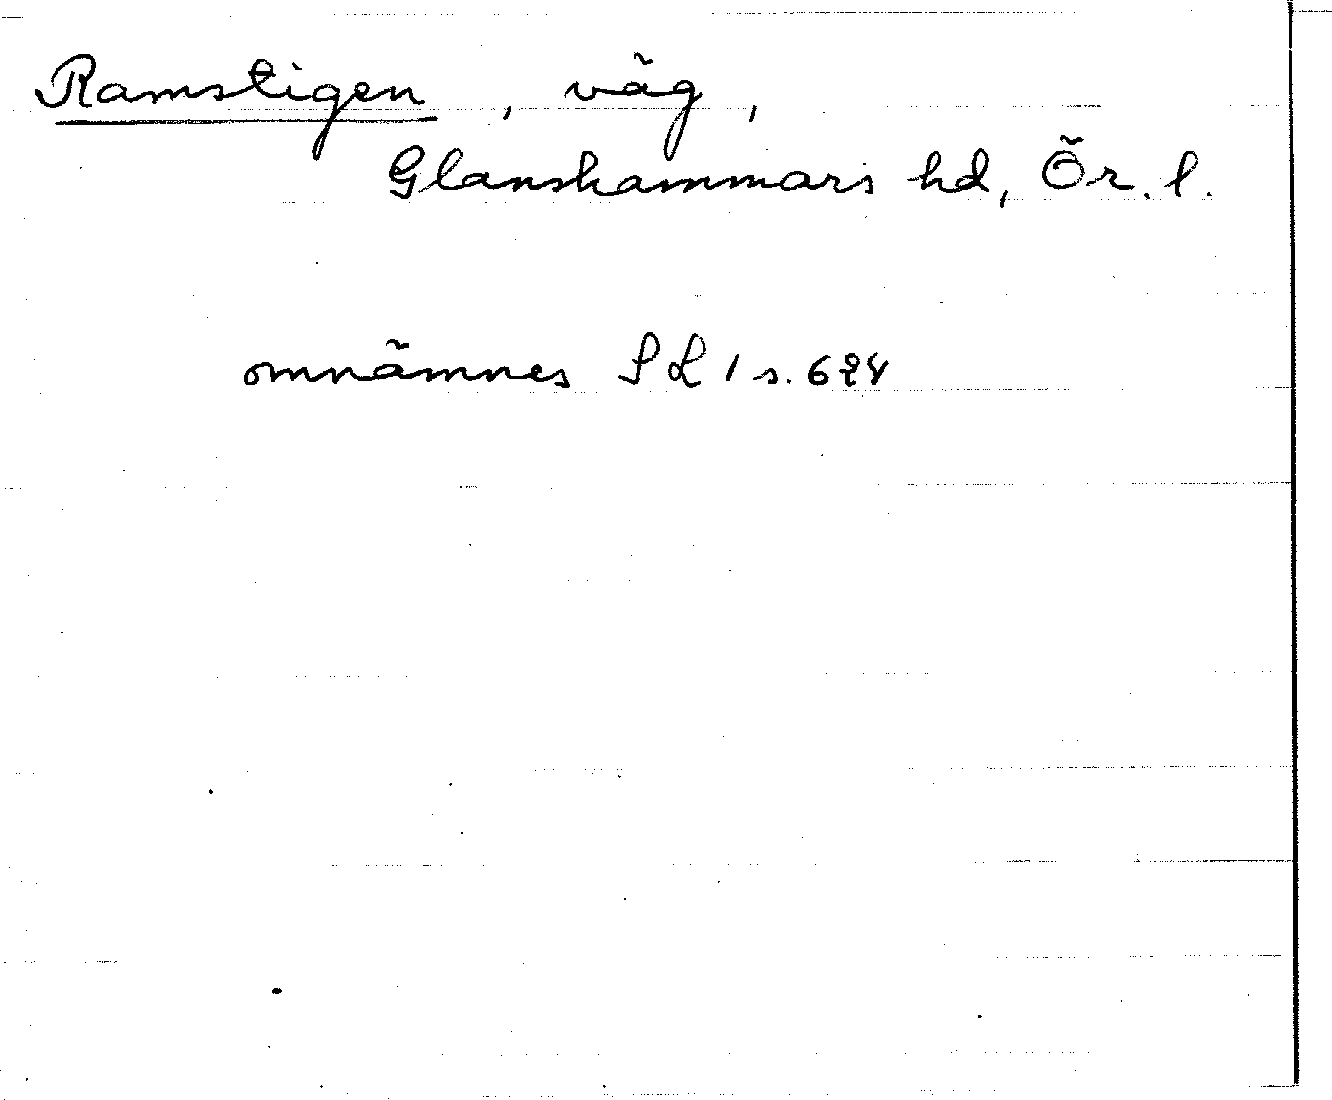 Ramstigen, väg,
Glanshammars hd, Ör. l.
omnämnes SL 1 s. 624